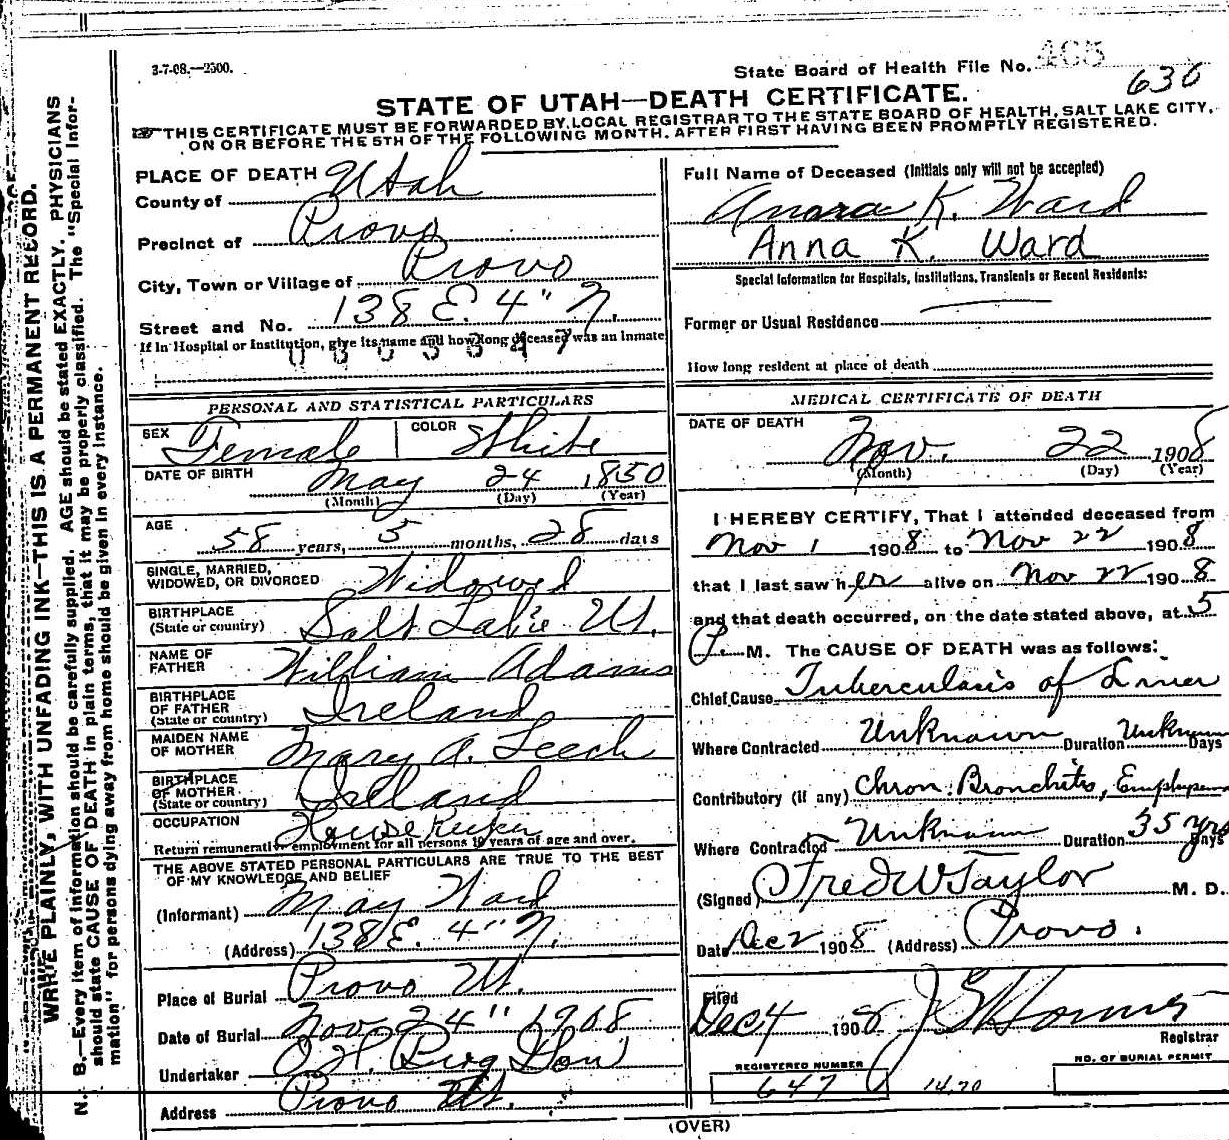 3-7-08.—2500.
State Board of Health File No. 465
636
STATE OF UTAH—DEATH CERTIFICATE.
THIS CERTIFICATE MUST BE FORWARDED BY LOCAL REGISTRAR TO THE STATE BOARD OF HEALTH, SALT LAKE CITY,
ON OR BEFORE THE 5TH OF THE FOLLOWING MONTH, AFTER FIRST HAVING BEEN PROMPTLY REGISTERED.
WRITE PLAINLY, WITH UNFADING INK—THIS IS A PERMANENT RECORD.
N. B.—Every item of information should be carefully supplied. AGE should be stated EXACTLY. PHYSICIANS
should state CAUSE OF DEATH in plain terms, that it may be properly classified. The "Special Infor-
mation" for persons dying away from home should be given in every instance.
PLACE OF DEATH
County of Utah
Precinct of Provo
City, Town or Village of Provo
Street and No. 138 E. 4" N.
If in Hospital or Institution, give its name and how long deceased was an inmate
PERSONAL AND STATISTICAL PARTICULARS
SEX Female COLOR White
DATE OF BIRTH May 24 1850
(Month) (Day) (Year)
AGE 58 years, 5 months, 28 days
SINGLE, MARRIED,
WIDOWED, OR DIVORCED Widowed
BIRTHPLACE
(State or country) Salt Lake Ut.
NAME OF
FATHER William Adams
BIRTHPLACE
OF FATHER
(State or country) Ireland
MAIDEN NAME
OF MOTHER Mary A. Leech
BIRTHPLACE
OF MOTHER
(State or country) Ireland
OCCUPATION House Keeker
Return remunerative employment for all persons 10 years of age and over.
THE ABOVE STATED PERSONAL PARTICULARS ARE TRUE TO THE BEST
OF MY KNOWLEDGE AND BELIEF
(Informant) May Ward
(Address) 138 E. 4" N.
Place of Burial Provo Ut.
Date of Burial Nov 24" 1908
Undertaker O. H. Berg & Son
Address Provo Ut.
Full Name of Deceased (Initials only will not be accepted)
K. Ward
Anna K. Ward
Special Information for Hospitals, Institutions, Transients or Recent Residents:
Former or Usual Residence
How long resident at place of death
MEDICAL CERTIFICATE OF DEATH
DATE OF DEATH
Nov. 22 1908
(Month) (Day) (Year)
I HEREBY CERTIFY, That I attended deceased from
Nov 1 1908 to Nov 22 1908
that I last saw her alive on Nov 22 1908
and that death occurred, on the date stated above, at 5
P. M. The CAUSE OF DEATH was as follows:
Chief Cause Tuberculosis of Liver
Where Contracted Unknown Duration Unknown Days
Contributory (if any) Chron. Bronchitis, Emphysema
Where Contracted Unknown Duration 35 yrs Days
(Signed) Fred W Taylor M. D.
Date Dec 2 1908 (Address) Provo.
Filed
Dec 4 1908
Registrar
REGISTERED NUMBER
647
1470
NO. OF BURIAL PERMIT
(OVER)